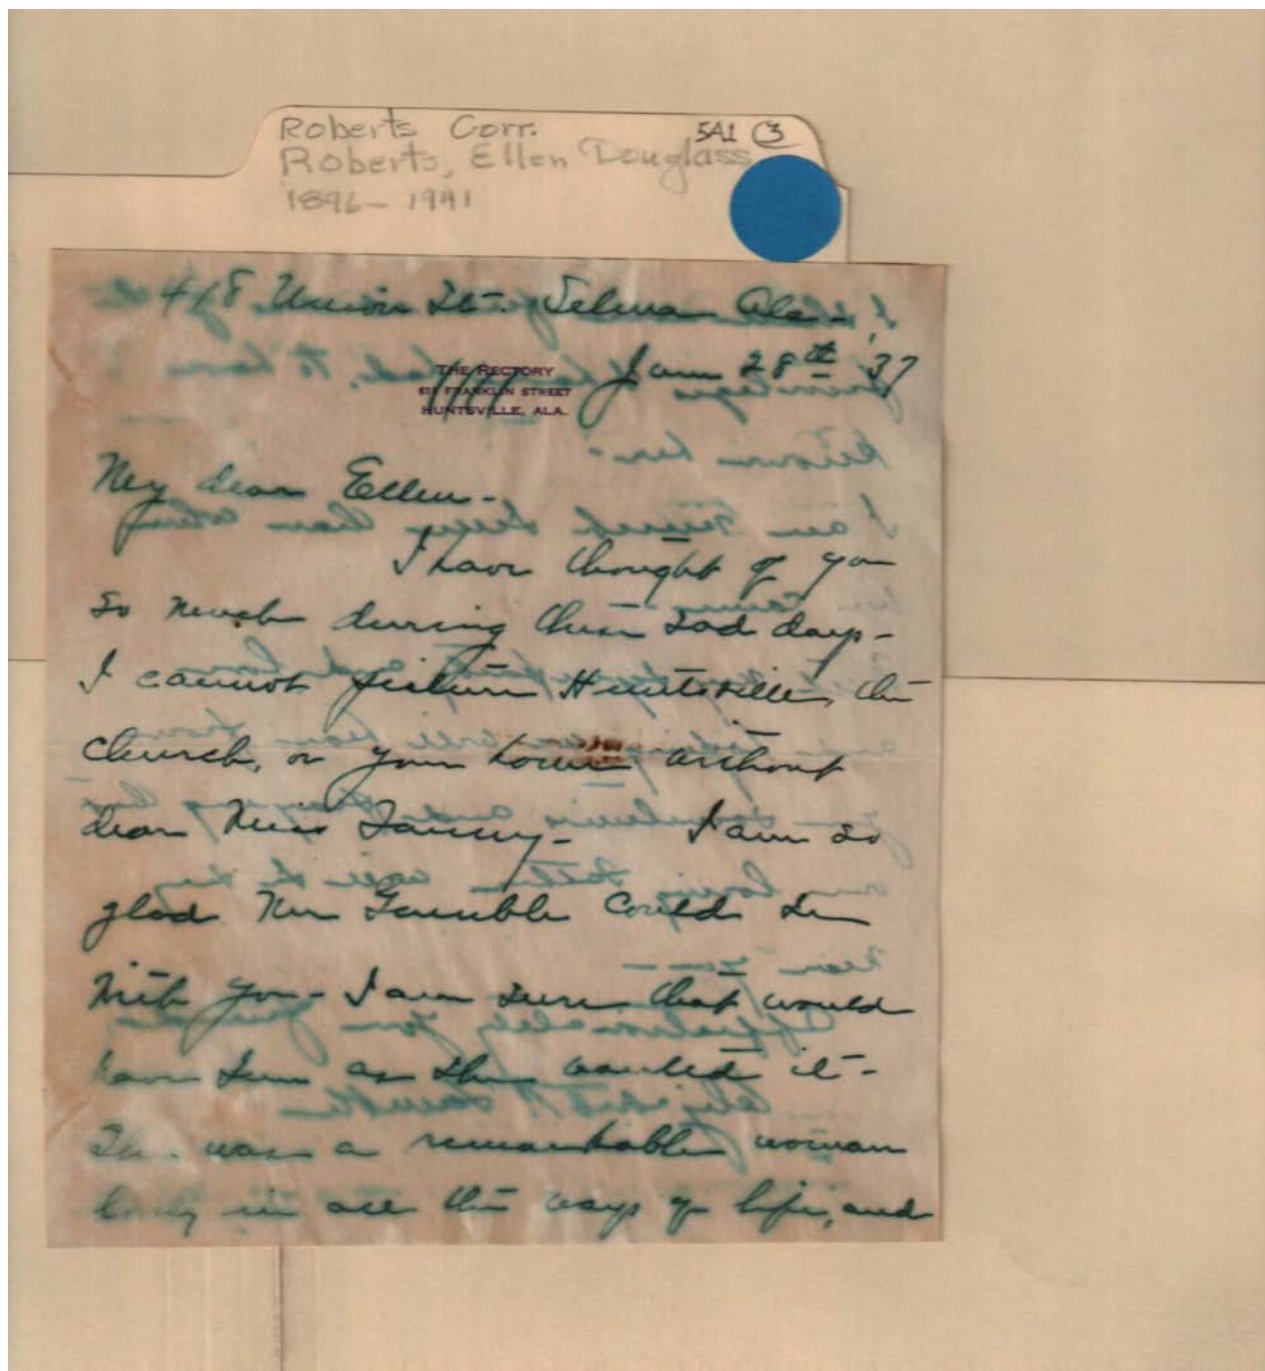 Roberts Corr. 5A1 3
Roberts, Ellen Douglass
1896-1941
418 Union St. Selma Ala.
Jan 28th '37
THE RECTORY
FRANKLIN STREET
HUNTSVILLE, ALA.
My dear Ellen-
I have thought of you
so much during these sad days-
I cannot picture Huntsville, the
church, or your home without
dear Miss Fanny- I am so
glad Mr Gamble could be
with you- I am sure that would
have been as she wanted it-
She was a remarkable woman
in all the ways of life, and